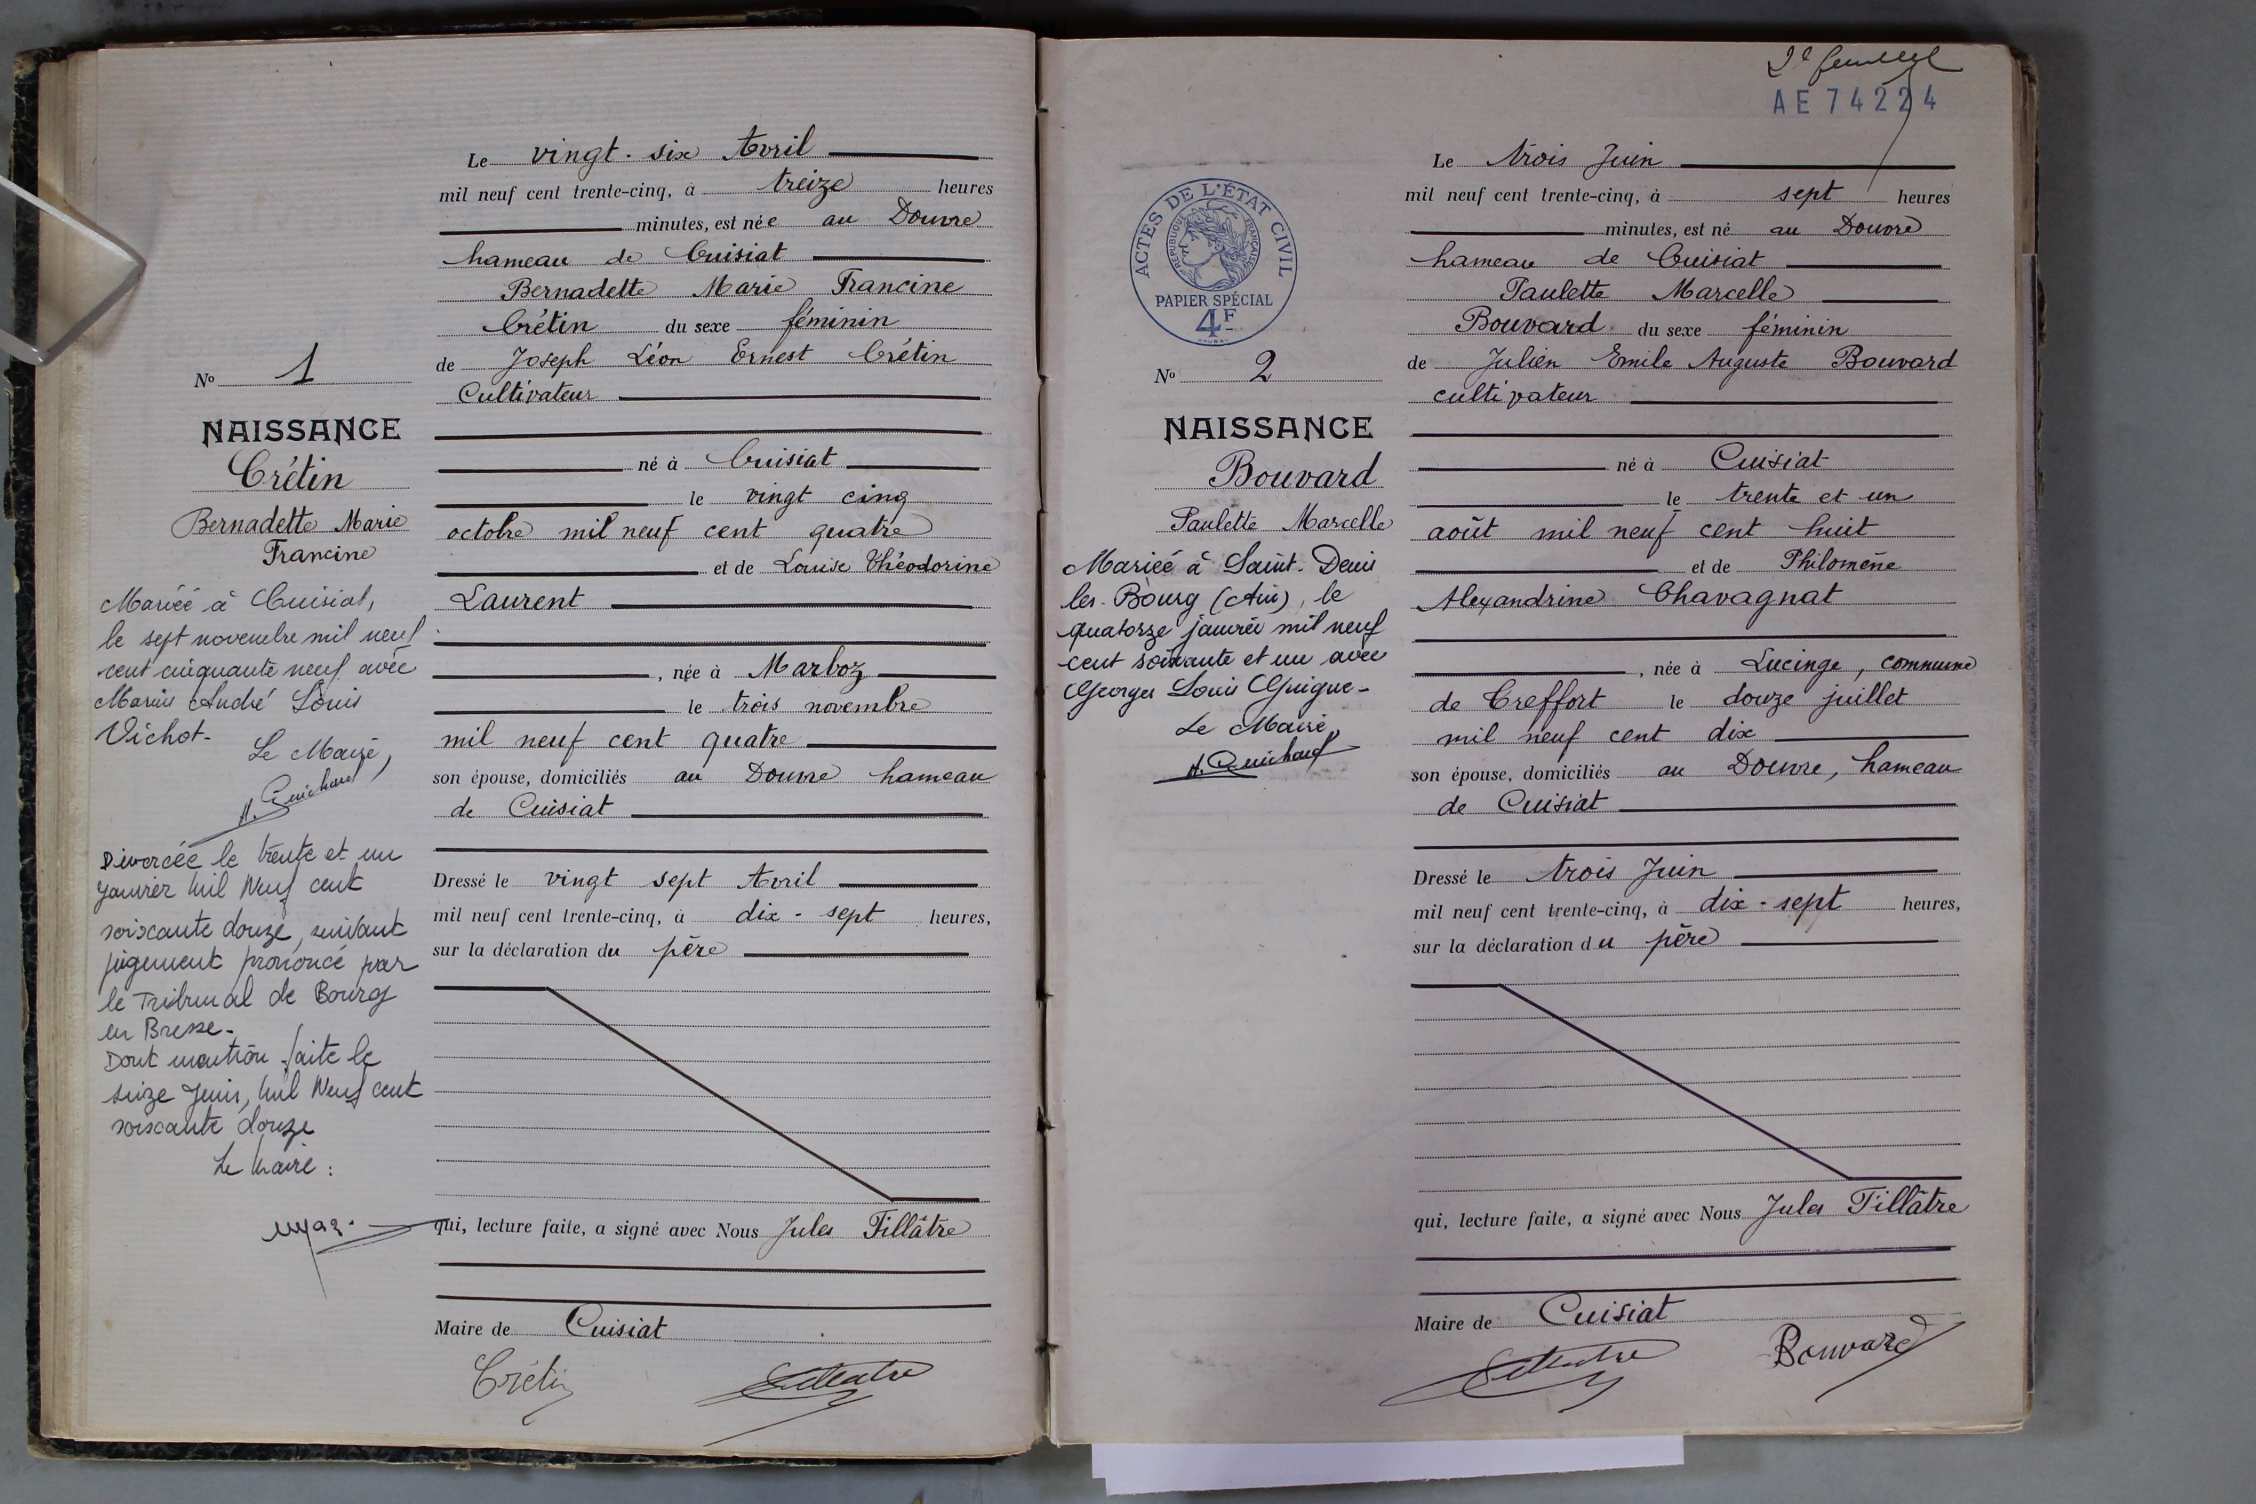 Le vingt-six Avril
mil neuf cent trente-cinq, à treize heures
minutes, est née au Douvre
hameau de Cuisiat
Bernadette Marie Francine
Crétin du sexe féminin
de Joseph Léon Ernest Crétin
Cultivateur
né à Cuisiat
le vingt cinq
octobre mil neuf cent quatre
et de Louise Théodorine
Laurent
, née à Marboz
le trois novembre
mil neuf cent quatre
son épouse, domiciliés au Douvre hameau
de Cuisiat
Dressé le vingt sept Avril
mil neuf cent trente-cinq, à dix-sept heures,
sur la déclaration du père
qui, lecture faite, a signé avec Nous Jules Fillâtre
Maire de Cuisiat
Crétin
No 1
NAISSANCE
Crétin
Bernadette Marie
Francine
Mariée à Cuisiat,
le sept novembre mil neuf
cent cinquante neuf avec
Marius André Louis
Vichot-
Le Maire,
Divorcée le trente et un
Janvier mil Neuf cent
soixante douze, suivant
jugement prononcé par
le Tribunal de Bourg
en Bresse-
Dont mention faite le
seize Juin, mil Neuf cent
soixante douze
Le Maire :
2e feuillet
AE 74224
Le trois Juin
mil neuf cent trente-cinq, à sept heures
minutes, est né au Douvre
hameau de Cuisiat
Paulette Marcelle
Bouvard du sexe féminin
de Julien Emile Auguste Bouvard
cultivateur
né à Cuisiat
le trente et un
août mil neuf cent huit
et de Philomène
Alexandrine Chavagnat
, née à Lucinge, commune
de Treffort le douze juillet
mil neuf cent dix
son épouse, domiciliés au Douvre, hameau
de Cuisiat
Dressé le trois Juin
mil neuf cent trente-cinq, à dix-sept heures,
sur la déclaration du père
qui, lecture faite, a signé avec Nous Jules Fillâtre
Maire de Cuisiat
Bouvard
ACTES DE L'ÉTAT CIVIL
RÉPUBLIQUE FRANÇAISE
PAPIER SPÉCIAL
4F
No 2
NAISSANCE
Bouvard
Paulette Marcelle
Mariée à Saint-Denis
les-Bourg (Ain), le
quatorze janvier mil neuf
cent soixante et un avec
Georges Louis Guigue-
Le Maire,